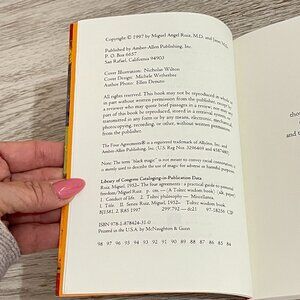 Copyright © 1997 by Miguel Angel Ruiz, M.D. and Janet Mills
Published by Amber-Allen Publishing, Inc.
P. O. Box 6657
San Rafael, California 94903
Cover Illustration: Nicholas Wilton
Cover Design: Michele Wetherbee
Author Photo: Ellen Denuto
All rights reserved. This book may not be reproduced in whole or
in part without written permission from the publisher, except by a
reviewer who may quote brief passages in a review; nor may any
part of this book be reproduced, stored in a retrieval system, or
transmitted in any form or by any means, electronic, mechanical,
photocopying, recording, or other, without written permission
from the publisher.
The Four Agreements® is a registered trademark of
Amber-Allen Publishing, Inc. (U.S. Reg Nos.
Note: The term "black magic" is not meant to convey racial connotation; it
is merely used to describe the use of magic for adverse or harmful purposes.
Library of Congress Cataloging-in-Publication Data
Ruiz, Miguel, 1952– The four agreements : a practical guide to personal
freedom/Miguel Ruiz p. cm. — (A Toltec wisdom book)
1. Conduct of life. 2. Toltec philosophy — Miscellanea.
I. Title. II. Series: Ruiz, Miguel, 1952– Toltec wisdom book.
BJ1581. 2. R85 1997 299'.792 — dc21 97-18256 CIP
ISBN 978-1-878424-31-0
Printed in the U.S.A. by McNaughton & Gunn
98 97 96 95 94 93 92 91 90 89 88 87 86 85 84